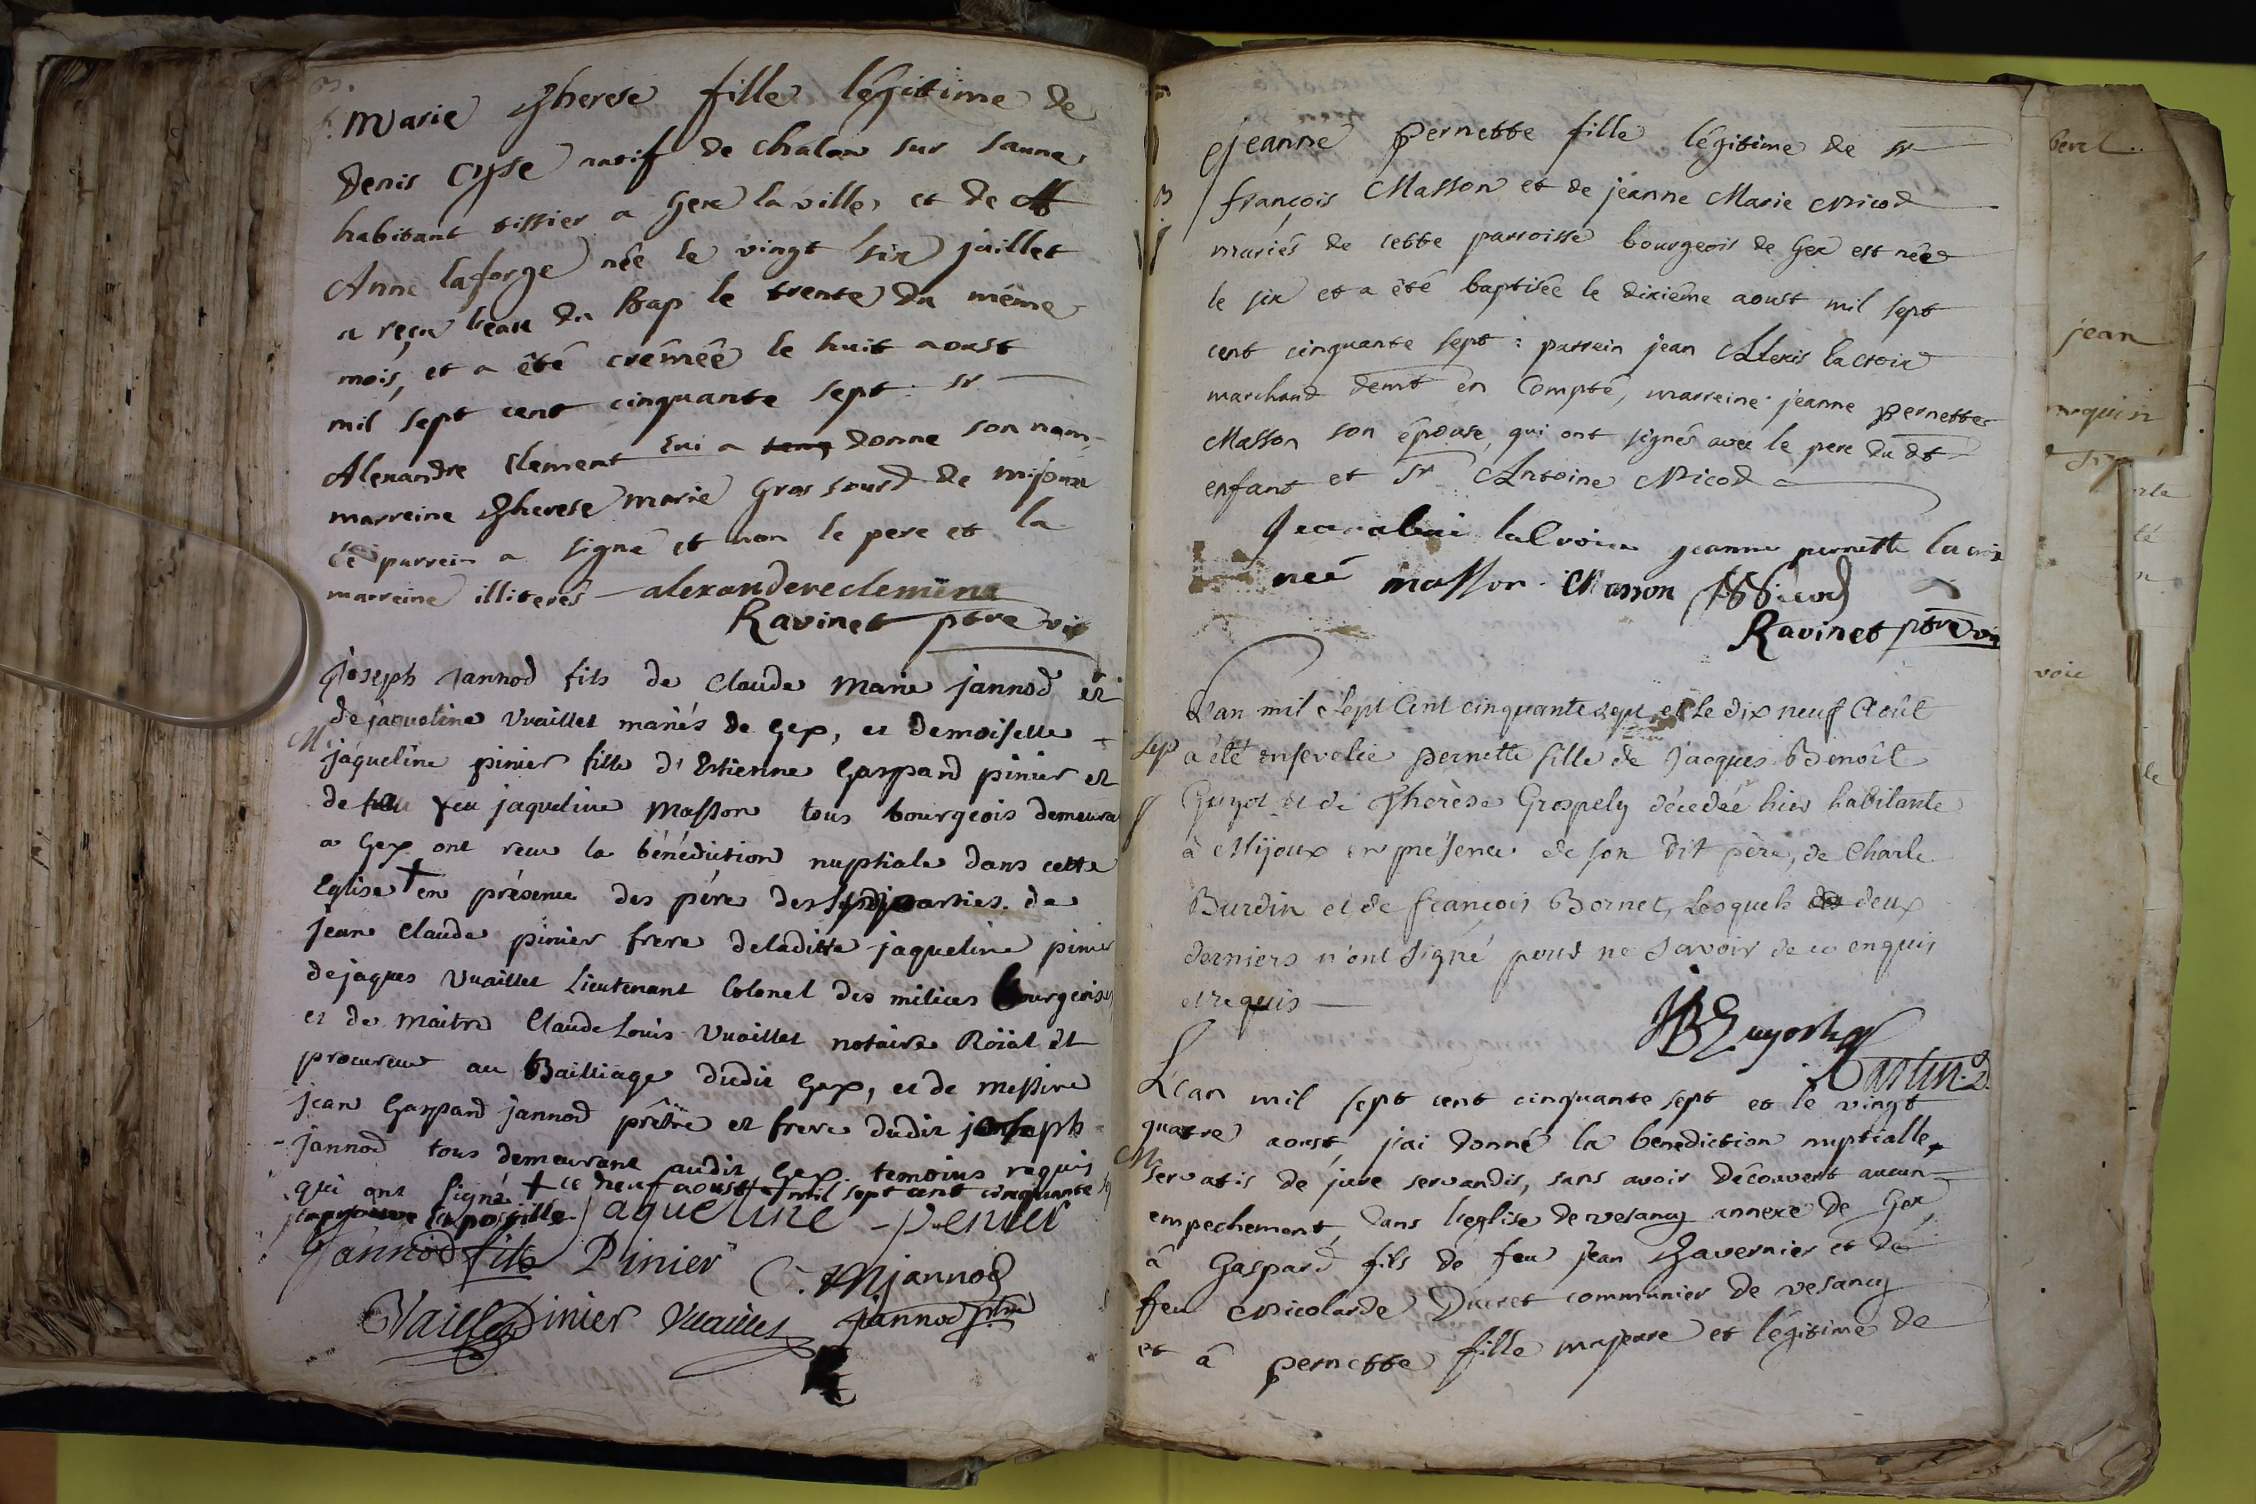 B.
Marie Therese fille légitime de
denis Cyse natif de chalon sur saune
habitant tissier a Gex la ville, et de
Anne laforge née le vingt six juillet
a reçu l'eau du Bap le trente du même
mois, et a été crêmée le huit aoust
mil sept cent cinquante sept sr
Alexandre Clement qui a donne son nom
marreine Therese Marie Gros sourd de mijoux
le parrein a signé et non le pere et la
marreine illiteres alexandereclement
Ravinet ptre vic
joseph jannod fils de Claude Marie jannod et
de jaqueline Vuaillet mariés de Gex, et demoiselle
M
jaqueline pinier fille d'Estienne Gaspard pinier et
de feu jaqueline Masson tous bourgeois demeura
a Gex ont reçu la bénédiction nuptiale dans cette
Eglise + en présence des pères desdi parties. de
jean Claude pinier frere de laditte jaqueline pinier
de jaques Vuaillet Lieutenant Colonel des milices bourgeoises
et de Maitre Claude Louis Vuaillet notaire Roïal et
procureur au Bailliage dudit Gex, et de Messire
jean Gaspard jannod prêtre et frere dudit joseph
jannod tous demeurant audit Gex temoins requis
qui ont signé + ce neuf aoust mil sept cent cinquante
japrouve lapostille jaqueline penier
jannod fils Pinier C. M jannod
Vaillet Pinier Vuaillet jannod ptre
jeanne pernette fille légitime de sr
B
françois Masson et de jeanne Marie Nicod
mariés de cette parroisse bourgeois de Gex est née
le six et a été baptisée le dixième aoust mil sept
cent cinquante sept : parrein jean Alexis lacroix
marchand demt en Compté, marreine jeanne pernette
Masson son épouse, qui ont signés avec le pere du dt
enfant et sr Antoine Nicod
jean alexi laCroix jeanne pernette lacroix
neé masson Masson Nicod
Ravinet ptre vic
L'an mil sept Cent cinquante sept et le dix neuf Août
sep a été ensevelie pernette fille de Jacques Benoît
Guyot et de Thérèse Grospely décedée hier habitante
à Mijoux en présence de son dit père, de Charle
Burdin et de françois Bornet, Lesquels deux
derniers n'ont signé pour ne savoir de ce enquis
et requis
JBGuyot
L'an mil sept cent cinquante sept et le vingt
quatre aoust, j'ai donné la benediction nuptialle,
M
servatis de jure servandis, sans avoir découvert aucun
empechement, dans l'eglise de vesancy annexe de Gex,
à Gaspard fils de feu jean Tavernier et de
feu Nicolarde Ducret communier de vesancy
et à pernette fille majeure et légitime de
jean
voie